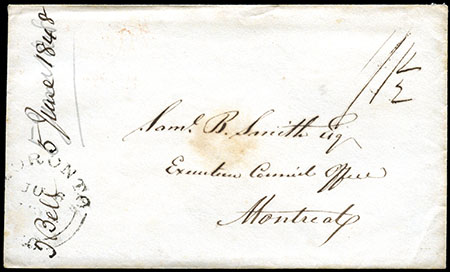 Saml. B. Smith Esq
Executive Council Office
Montreal
1/1½
5 June 1848
TORONTO